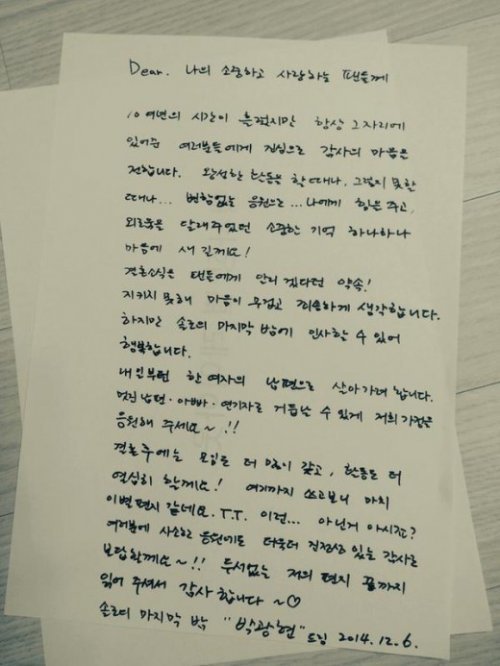 Dear. 나의 소중하고 사랑하는 팬들께
10여년의 시간이 흘렀지만 항상 그자리에
있어준 여러분들에게 진심으로 감사의 마음을
전합니다. 왕성한 활동을 할때나, 그렇지 못한
때나... 변함없는 응원으로... 나에게 힘을 주고,
외로움을 달래주었던 소중한 기억 하나하나
마음에 새길께요!
결혼소식은 팬들에게 알리겠다던 약속!
지키지 못해 마음이 무겁고 죄송하게 생각합니다.
하지만 솔로의 마지막 밤에 인사할 수 있어
행복합니다.
내일부턴 한 여자의 남편으로 살아가려 합니다.
멋진 남편·아빠·연기자로 거듭날 수 있게 저희 가정을
응원해 주세요~!!
결혼후에는 모임도 더 많이 갖고, 활동도 더
열심히 할께요! 여기까지 쓰고보니 마치
이별편지 같네요. T.T. 이런... 아닌거 아시죠?
여러분에 사소한 응원에도 더욱더 진정성 있는 감사로
보답할께요~!! 두서없는 저의 편지 끝까지
읽어 주셔서 감사합니다~♡
솔로의 마지막 밤 "박광현" 드림 2014.12.6.